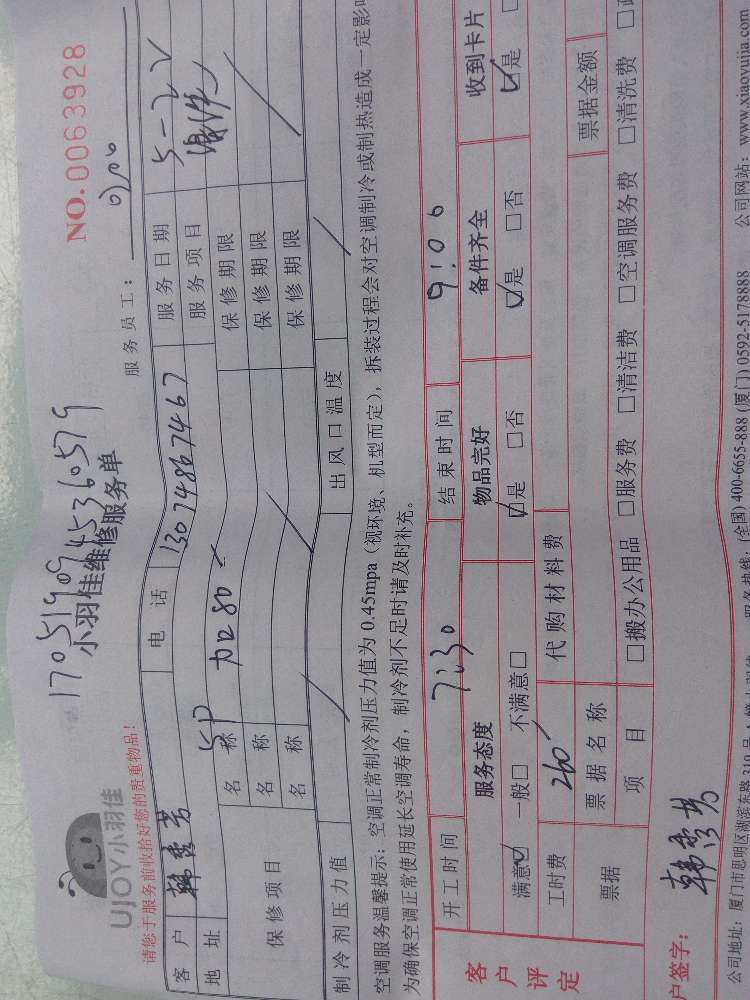 NO.0063928
1705190945360579
UJOY小羽佳
小羽佳维修服务单
请您于服务前收拾好您的贵重物品!
服务员工:
客户 韩秀芳 电话 13074867467 服务日期 5-22
地址 服务项目
名称 加280 保修期限
保修项目 名称 保修期限
名称 保修期限
制冷剂压力值 出风口温度
空调服务温馨提示:空调正常制冷剂压力值为 0.45mpa(视环境、机型而定),拆装过程会对空调制冷或制热造成一定影
为确保空调正常使用延长空调寿命,制冷剂不足时请及时补充。
开工时间 7:30 结束时间 9:06
客户评定 服务态度 物品完好 备件齐全 收到卡片
满意☑ 一般□ 不满意□ ☑是 □否 ☑是 □否 ☑是
工时费 260 代购材料费
票据 票据名称 票据金额
项目 □搬办公用品 □服务费 □清洁费 □空调服务费 □清洗费
户签字: 韩秀芳
公司地址:厦门市思明区湖滨东路 (全国) 400-6655-888 (厦门) 0592-5178888 公司网站:www.xiaoyujia.com